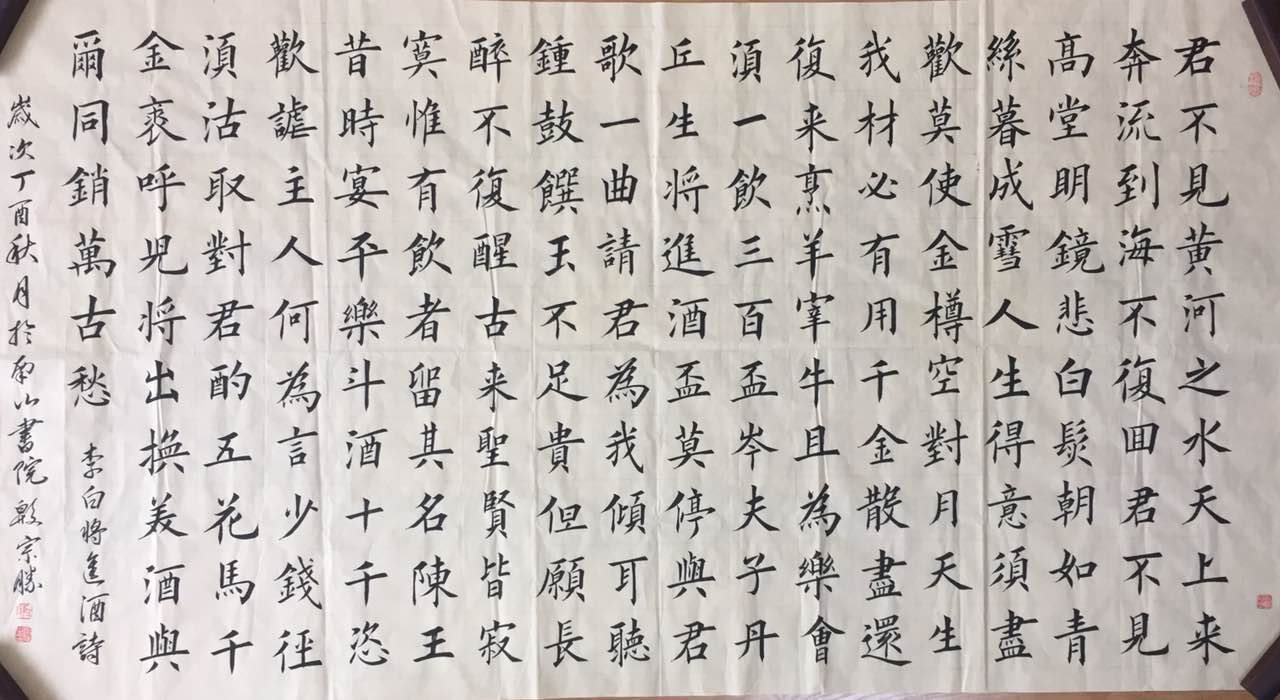 君不見黄河之水天上来
奔流到海不復回君不見
高堂明鏡悲白髮朝如青
絲暮成雪人生得意須盡
歡莫使金樽空對月天生
我材必有用千金散盡還
復来烹羊宰牛且為樂會
須一飲三百盃岑夫子丹
丘生将進酒盃莫停與君
歌一曲請君為我傾耳聽
鍾鼓饌玉不足貴但願長
醉不復醒古来聖賢皆寂
寞惟有飲者留其名陳王
昔時宴平樂斗酒十千恣
歡謔主人何為言少錢徑
須沽取對君酌五花馬千
金裘呼児将出換美酒與
爾同銷萬古愁
李白将進酒詩
歲次丁酉秋月於南山書院殷宗勝